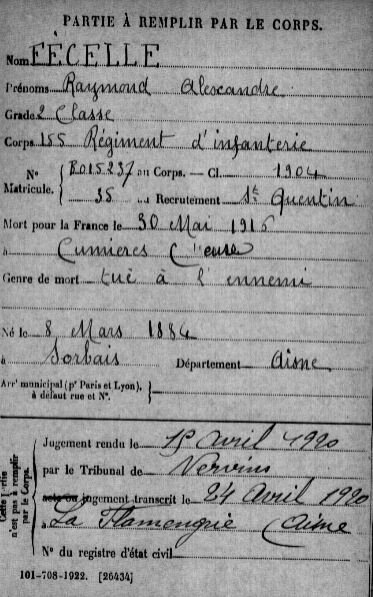 PARTIE À REMPLIR PAR LE CORPS.
Nom FÈCELLE
Prénoms Raymond Alexandre
Grade 2 Classe
Corps 155 Régiment d'infanterie
N° Matricule. { E015237 au Corps. — Cl. 1904
35 au Recrutement St Quentin
Mort pour la France le 30 Mai 1916
à Cumieres (Meuse
Genre de mort tué à l'ennemi
Né le 8 Mars 1884
à Sorbais Département Aisne
Arrt municipal (pr Paris et Lyon), à défaut rue et N°. }
Cette partie n'est pas à remplir par le Corps.
Jugement rendu le 15 Avril 1920
par le Tribunal de Vervins
acte ou jugement transcrit le 24 Avril 1920
à La Flamengrie (Aisne
N° du registre d'état civil
101-708-1922. [26434]